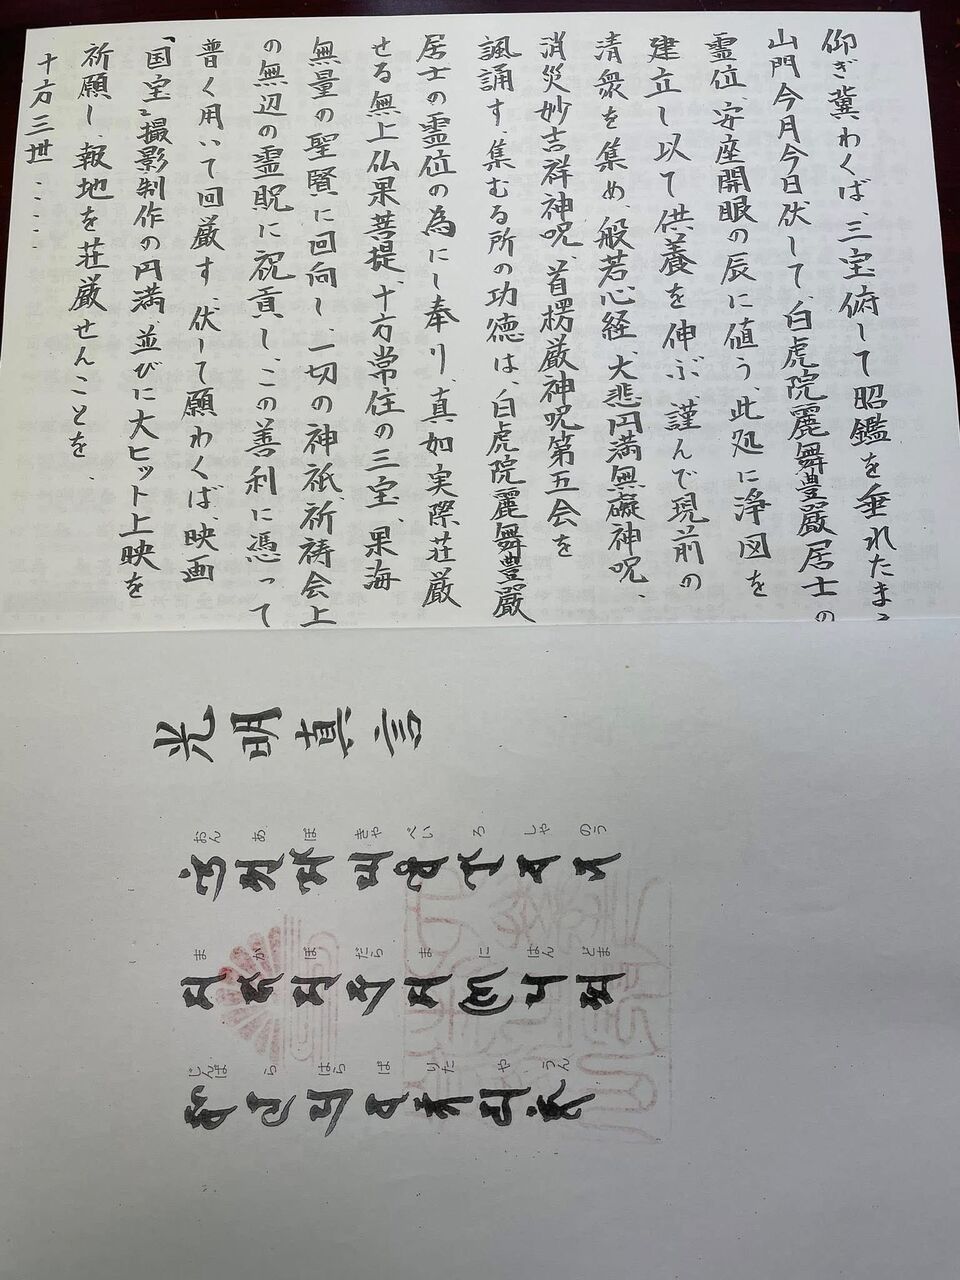 仰ぎ冀わくば、三宝俯して昭鑑を垂れたまう
山門今月今日伏して、白虎院麗舞豊巖居士の
霊位、安座開眼の辰に値う、此処に浄図を
建立し以て供養を伸ぶ、謹んで現前の
清衆を集め、般若心経、大悲円満無礙神呪、
消災妙吉祥神呪、首楞厳神呪第五会を
諷誦す、集むる所の功徳は、白虎院麗舞豊巖
居士の霊位の為にし奉り、真如実際荘厳
せる無上仏果菩提、十方常住の三宝、果海
無量の聖賢に回向し、一切の神祇、祈祷会上
の無辺の霊貺に祝貢し、この善利に憑って
普く用いて回厳す、伏して願わくば、映画
「国宝」撮影制作の円満、並びに大ヒット上映を
祈願し、報地を荘厳せんことを、
十方三世....
光明真言
おん あ ぼ きゃ べい ろ しゃ のう
𑖌𑖼 𑖀 𑖦𑖺 𑖑 𑖪𑖹 𑖨𑖺 𑖓 𑖡
ま か ぼ だら ま に はん どま
𑖦 𑖮𑖯 𑖦𑖲 𑖟𑖿𑖨𑖯 𑖦 𑖜𑖰 𑖢 𑖟𑖿𑖦
じんば ら はら ば りた や うん
𑖕𑖿𑖪 𑖩 𑖢𑖿𑖨 𑖪 𑖨𑖿𑖝 𑖧 𑖮𑖳𑖽